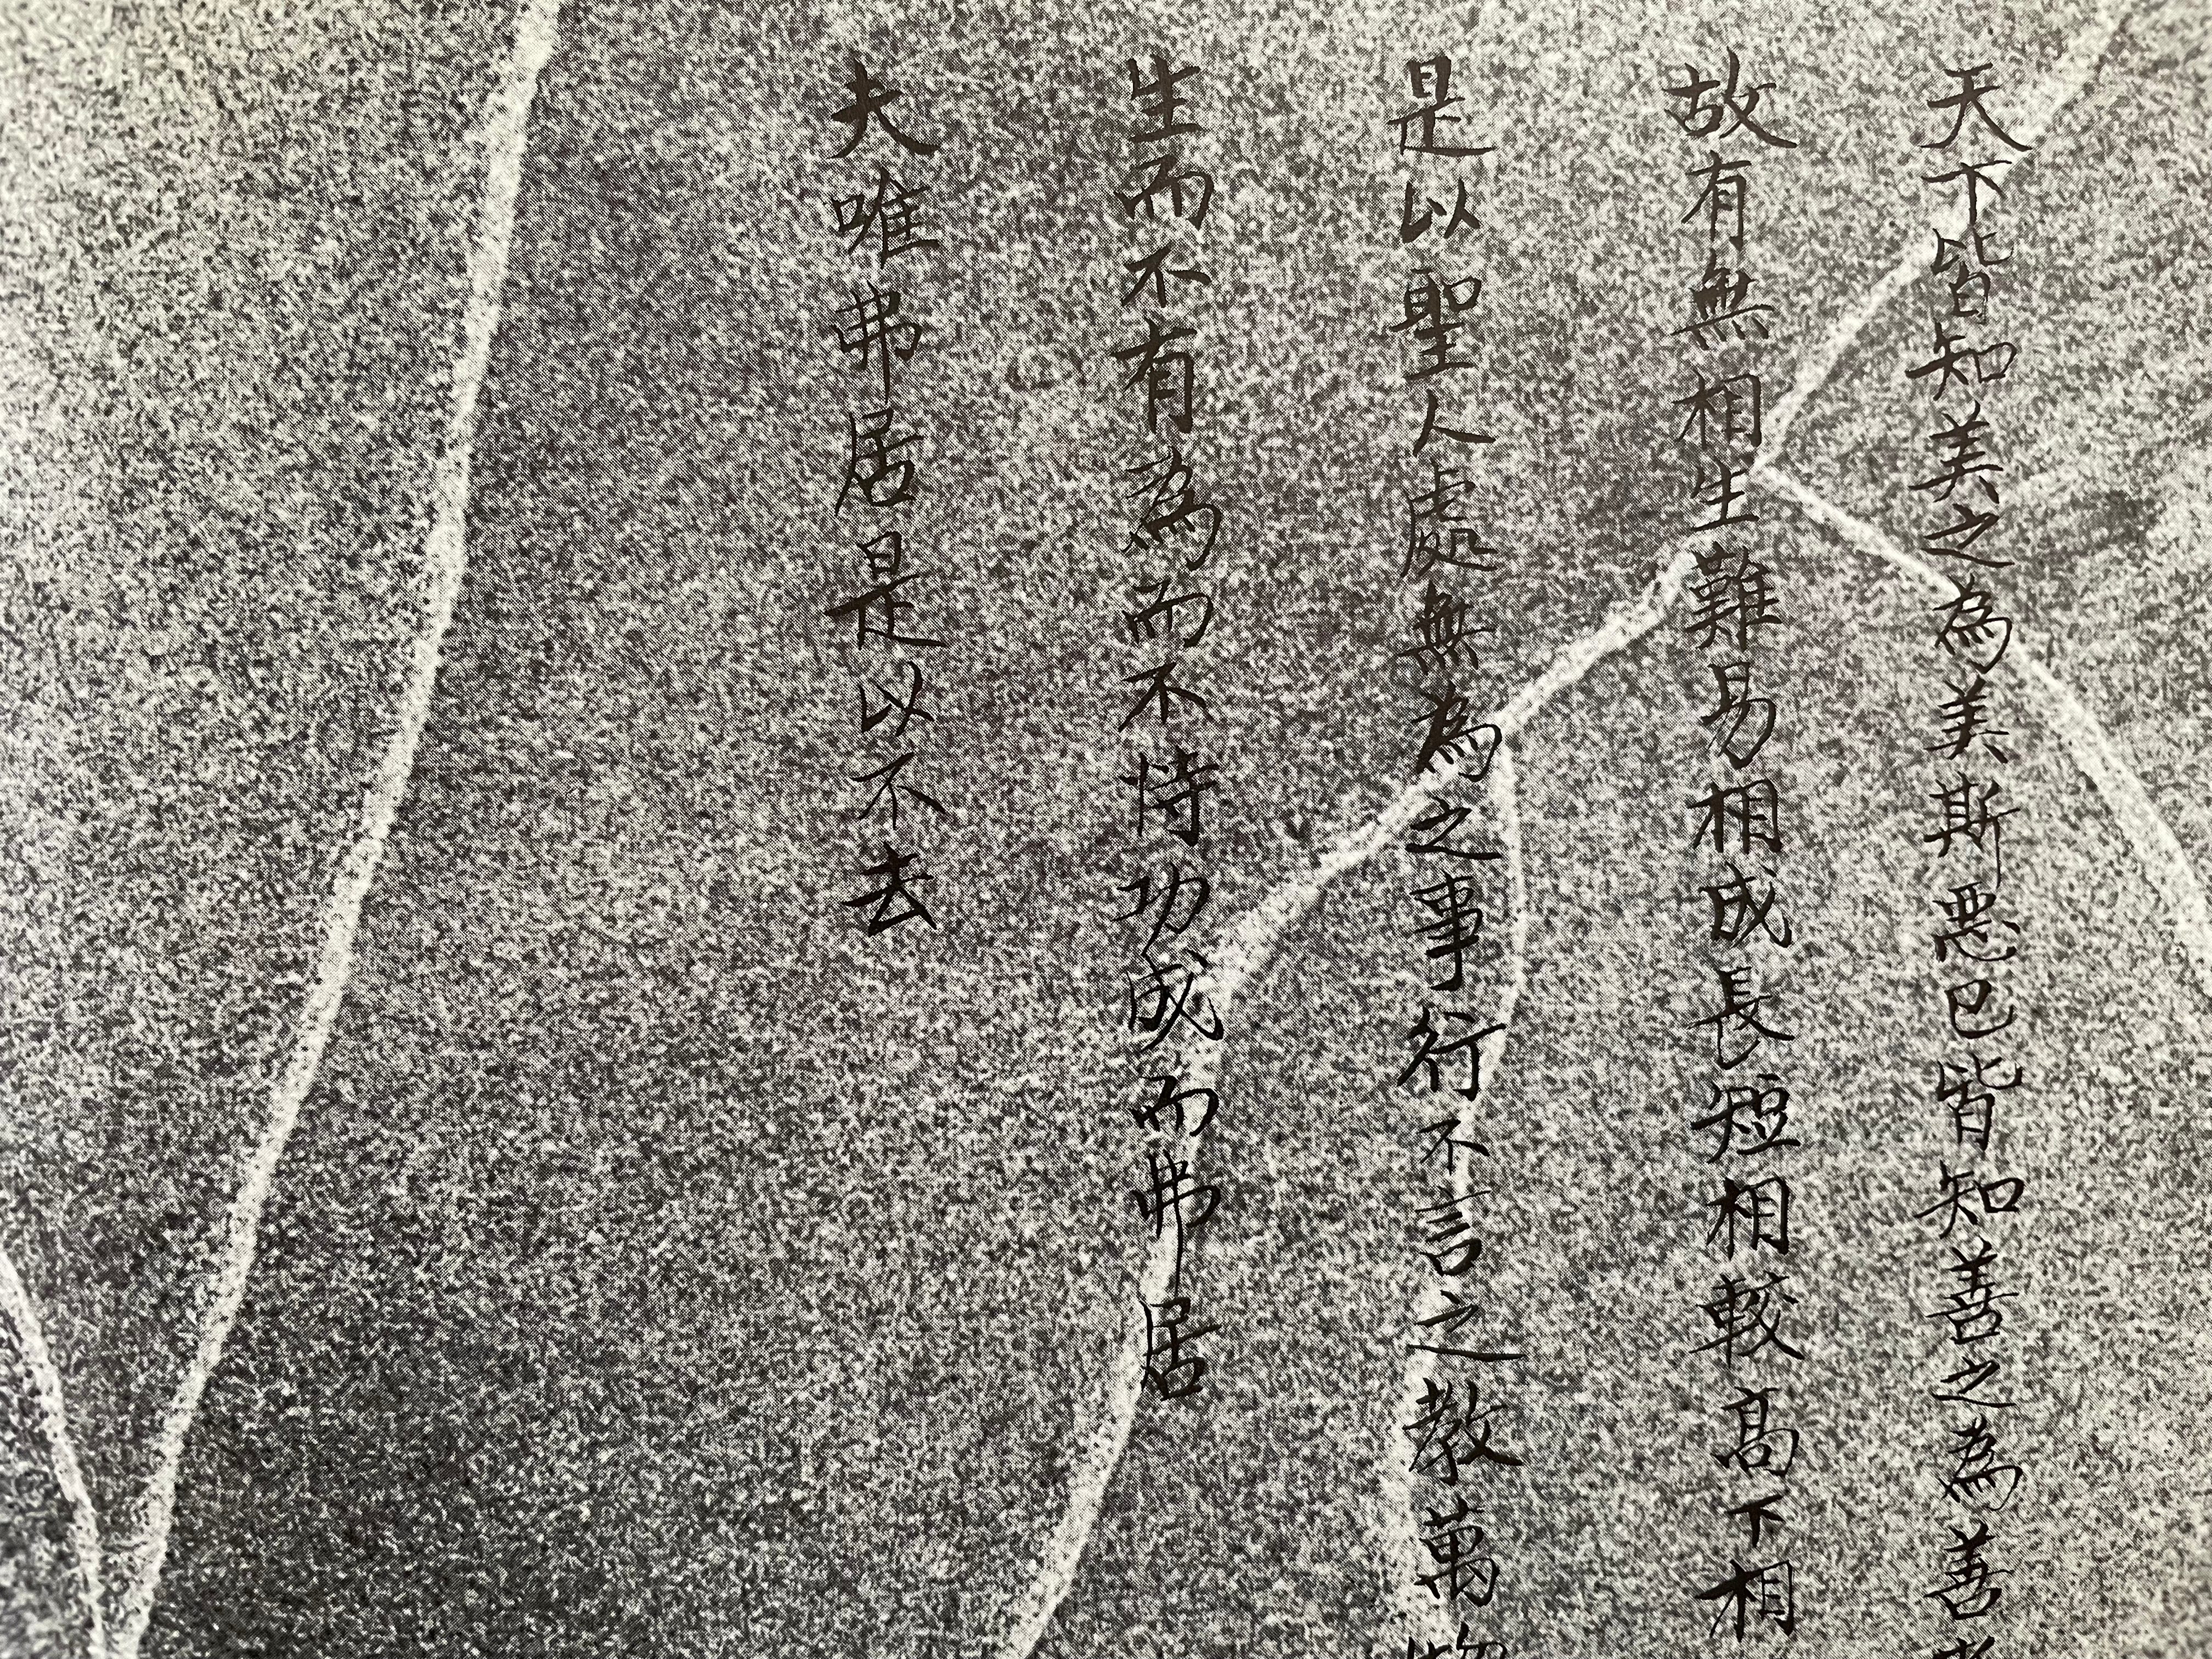 天下皆知美之為美斯惡已皆知善之為善
故有無相生難易相成長短相較高下相
是以聖人處無為之事行不言之教萬物
生而不有為而不恃功成而弗居
夫唯弗居是以不去